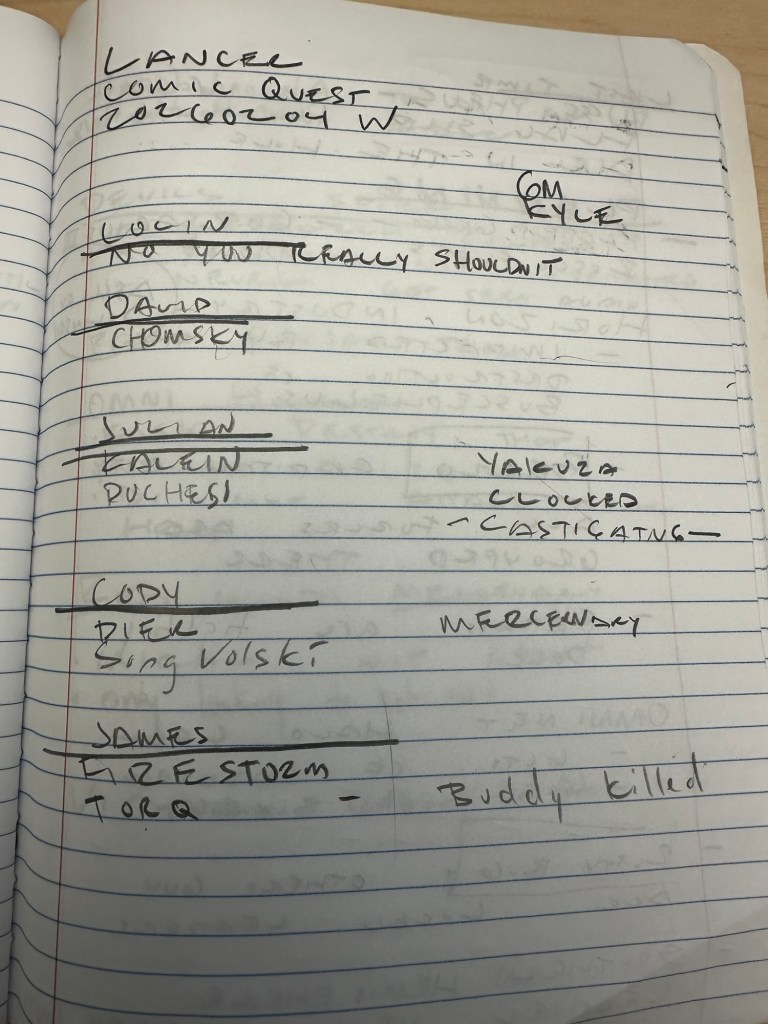 LANCER
COMIC QUEST
20260204 W
GM
KYLE
LOGIN
NO YOU REALLY SHOULDN'T
DAVID
CHOMSKY
JULIAN
KALEIN
DUCHESI
YAKUZA
CLOCKED
- CASTIGATNG -
CODY
DIER
Song Volski
MERCENDARY
JAMES
FIRESTORM
TORQ - Buddy killed